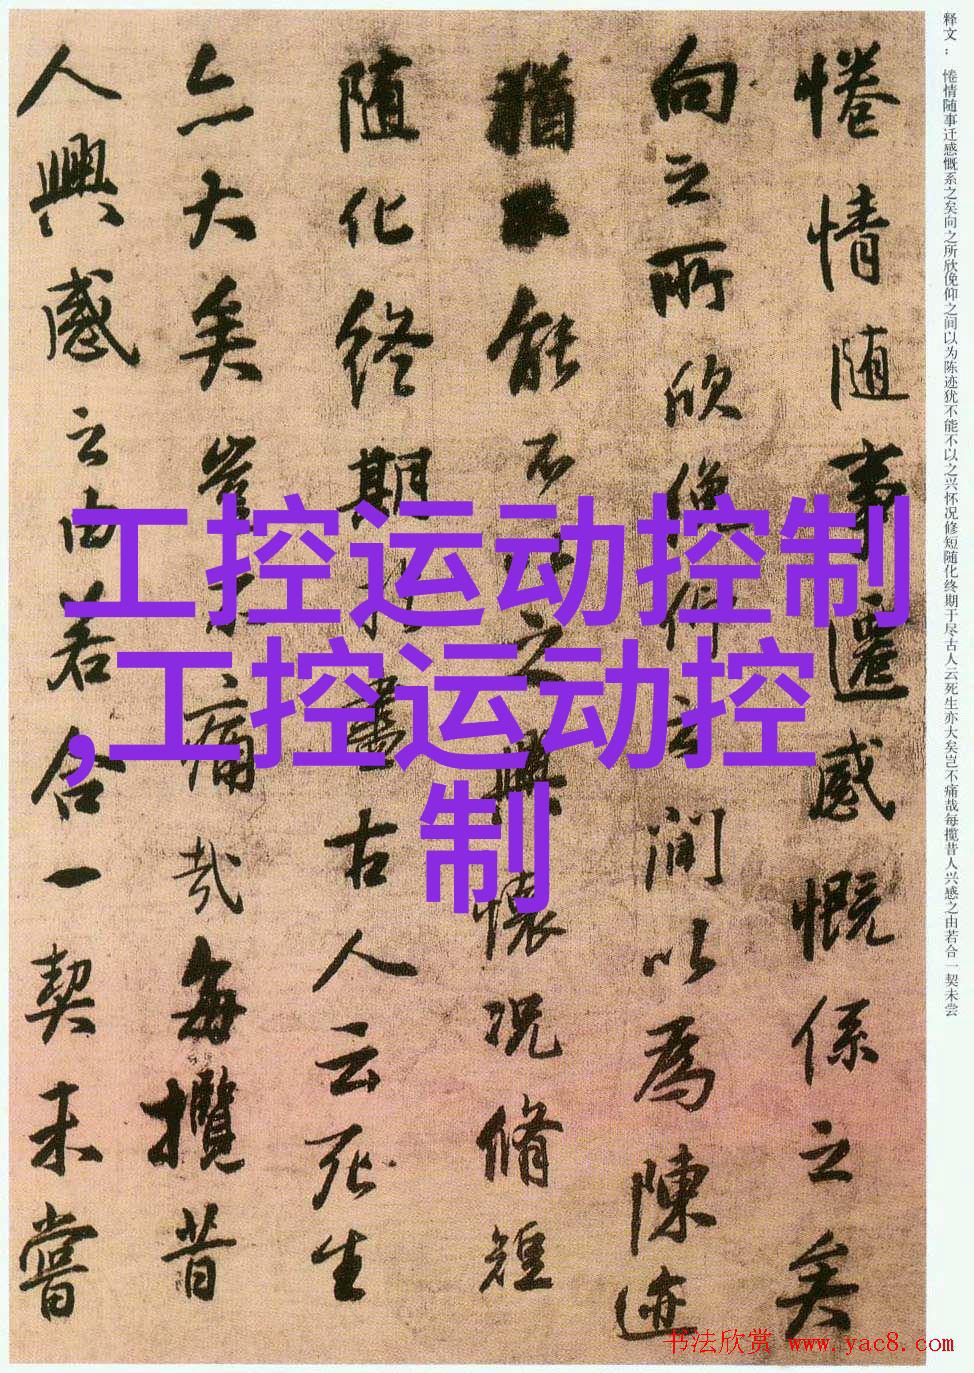 释文：惓情随事迁感慨系之矣向之所欣俛仰之间以为陈迹犹不能不以之兴怀况修短随化终期于尽古人云死生亦大矣岂不痛哉每揽昔人兴感之由若合一契未尝
惓情随事遷感慨係之矣
向之所欣俛仰之间以為陳迹
猶不能不以之興懷况脩短
随化终期於盡古人云死生
亦大矣豈不痛哉每攬昔
人興感之由若合一契未嘗
工控运动控制
,工控运动控
制
书法欣赏 www.yac8.com